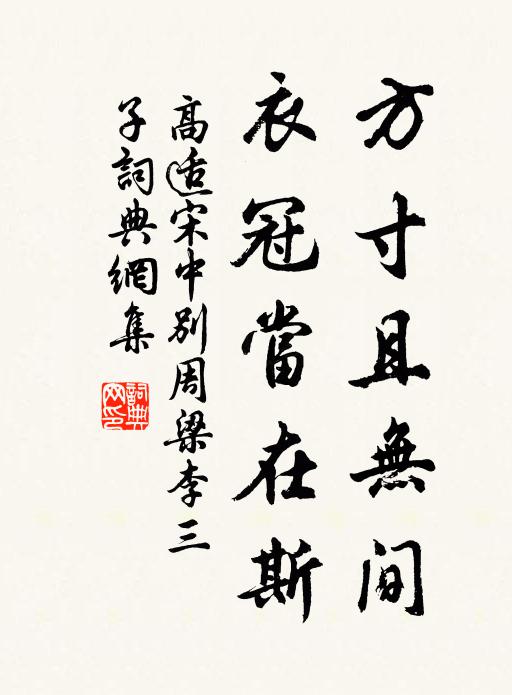 方寸且無間
衣冠當在斯
高适宋中別周梁李三
子詞典網集
詞典
网印